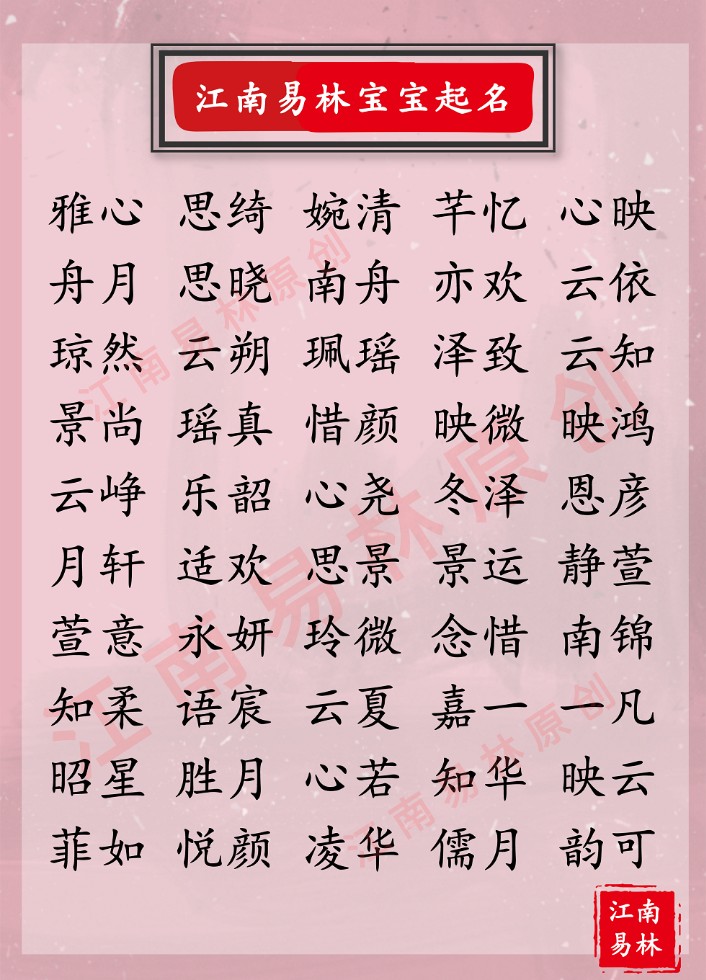 江南易林宝宝起名
雅心 思绮 婉清 芊忆 心映
舟月 思晓 南舟 亦欢 云依
琼然 云朔 珮瑶 泽致 云知
景尚 瑶真 惜颜 映微 映鸿
云峥 乐韶 心尧 冬泽 恩彦
月轩 适欢 思景 景运 静萱
萱意 永妍 玲微 念惜 南锦
知柔 语宸 云夏 嘉一 一凡
昭星 胜月 心若 知华 映云
菲如 悦颜 凌华 儒月 韵可
江南易林原创
江南易林原创
江南易林原创
江南
易林